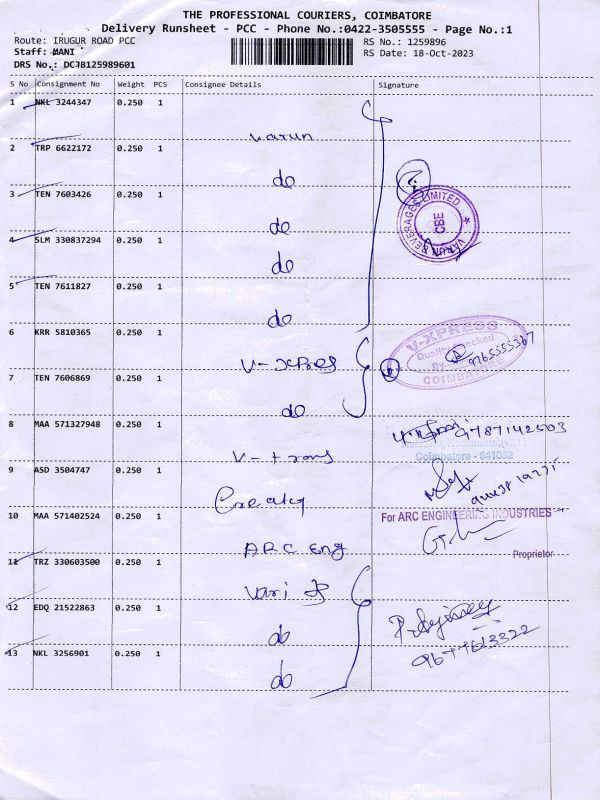 THE PROFESSIONAL COURIERS, COIMBATORE
Delivery Runsheet - PCC - Phone No.:0422-3505555 - Page No.:1
Route: IRUGUR ROAD PCC
RS No.: 1259896
Staff: MANI
RS Date: 18-Oct-2023
DRS No.: DCJB125989601
S No Consignment No Weight PCS Consignee Details Signature
1 NKL 3244347 0.250 1
Varun
2 TRP 6622172 0.250 1
do
3 TEN 7603426 0.250 1
do
4 SLM 330837294 0.250 1
do
5 TEN 7611827 0.250 1
do
VARUN BEVERAGES LIMITED
CBE
6 KRR 5810365 0.250 1
V-Xpres
V-XPRESS
Quality Checked
By
COIMBATORE
9765555367
7 TEN 7606869 0.250 1
do
8 MAA 571327948 0.250 1
V-trans
9787142503
Coimbatore - 641062
9 ASD 3504747 0.250 1
10 MAA 571402524 0.250 1
ARC Eng
For ARC ENGINEERING INDUSTRIES
Proprietor
11 TRZ 330603500 0.250 1
12 EDQ 21522863 0.250 1
do
9677613322
13 NKL 3256901 0.250 1
do